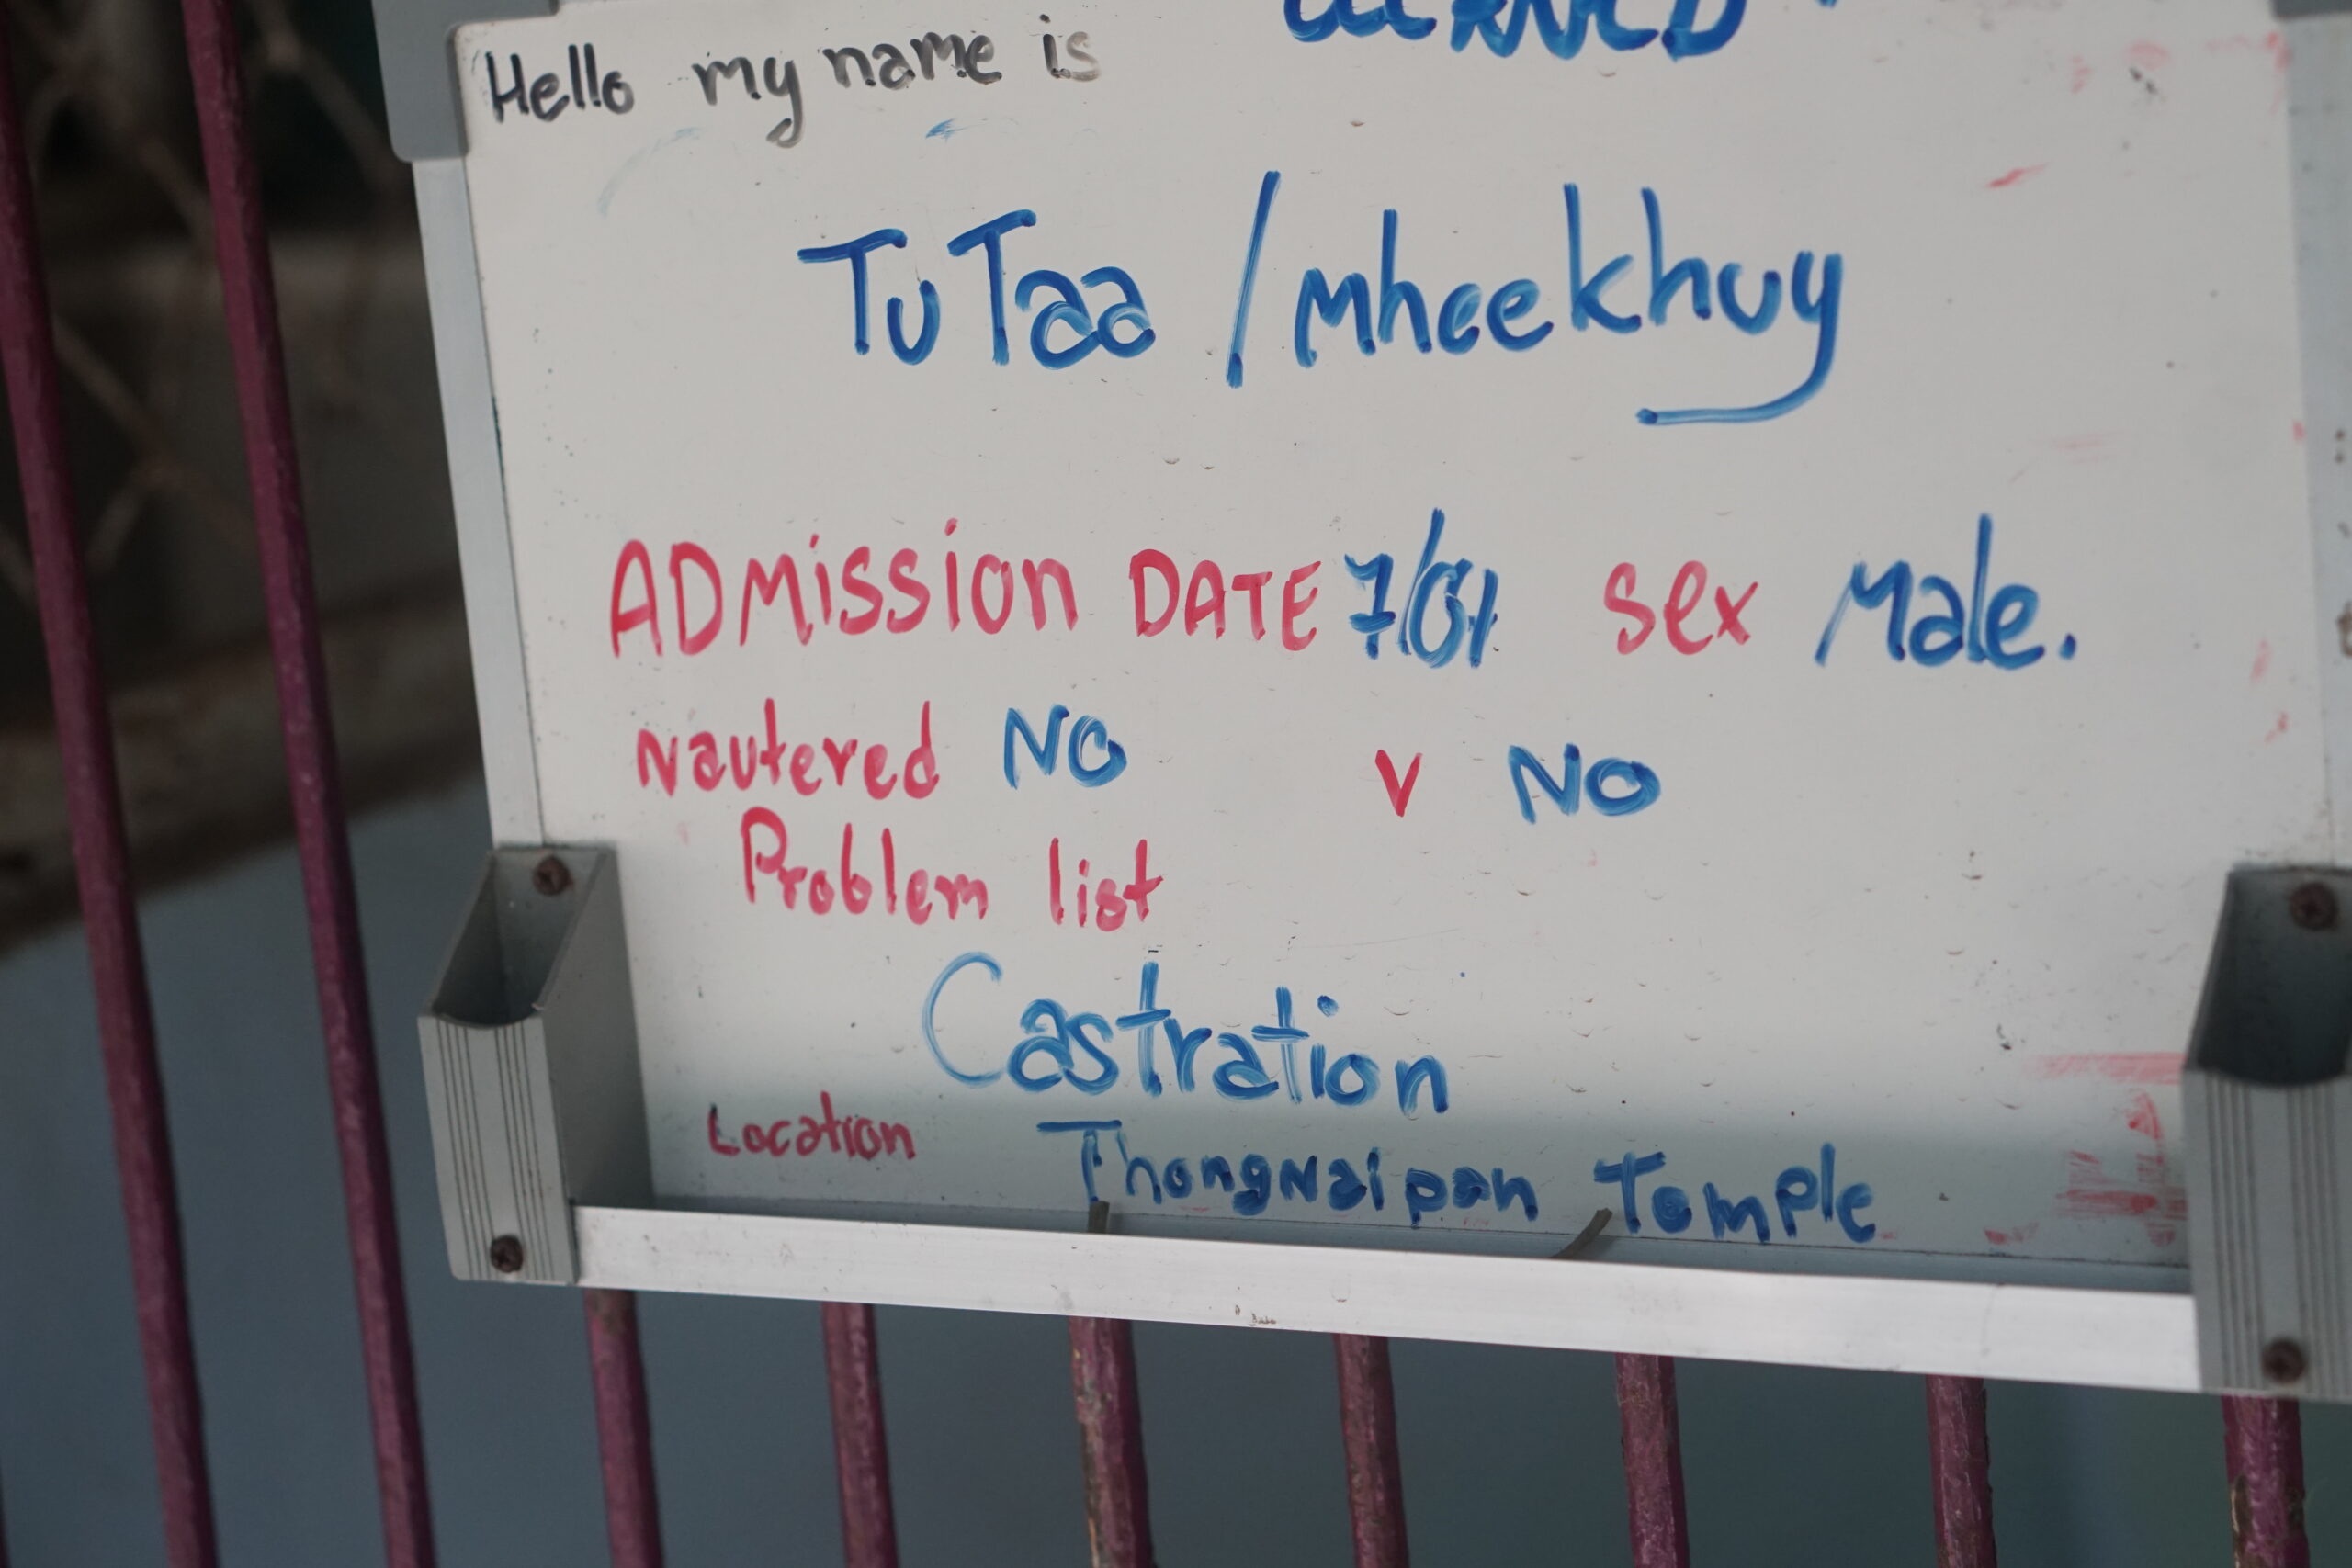 Hello my name is
TuTaa / mheekhuy
ADMission DATE 7/01 sex Male.
Nautered NO V NO
Problem list
Castration
Location Thongnaipan Temple